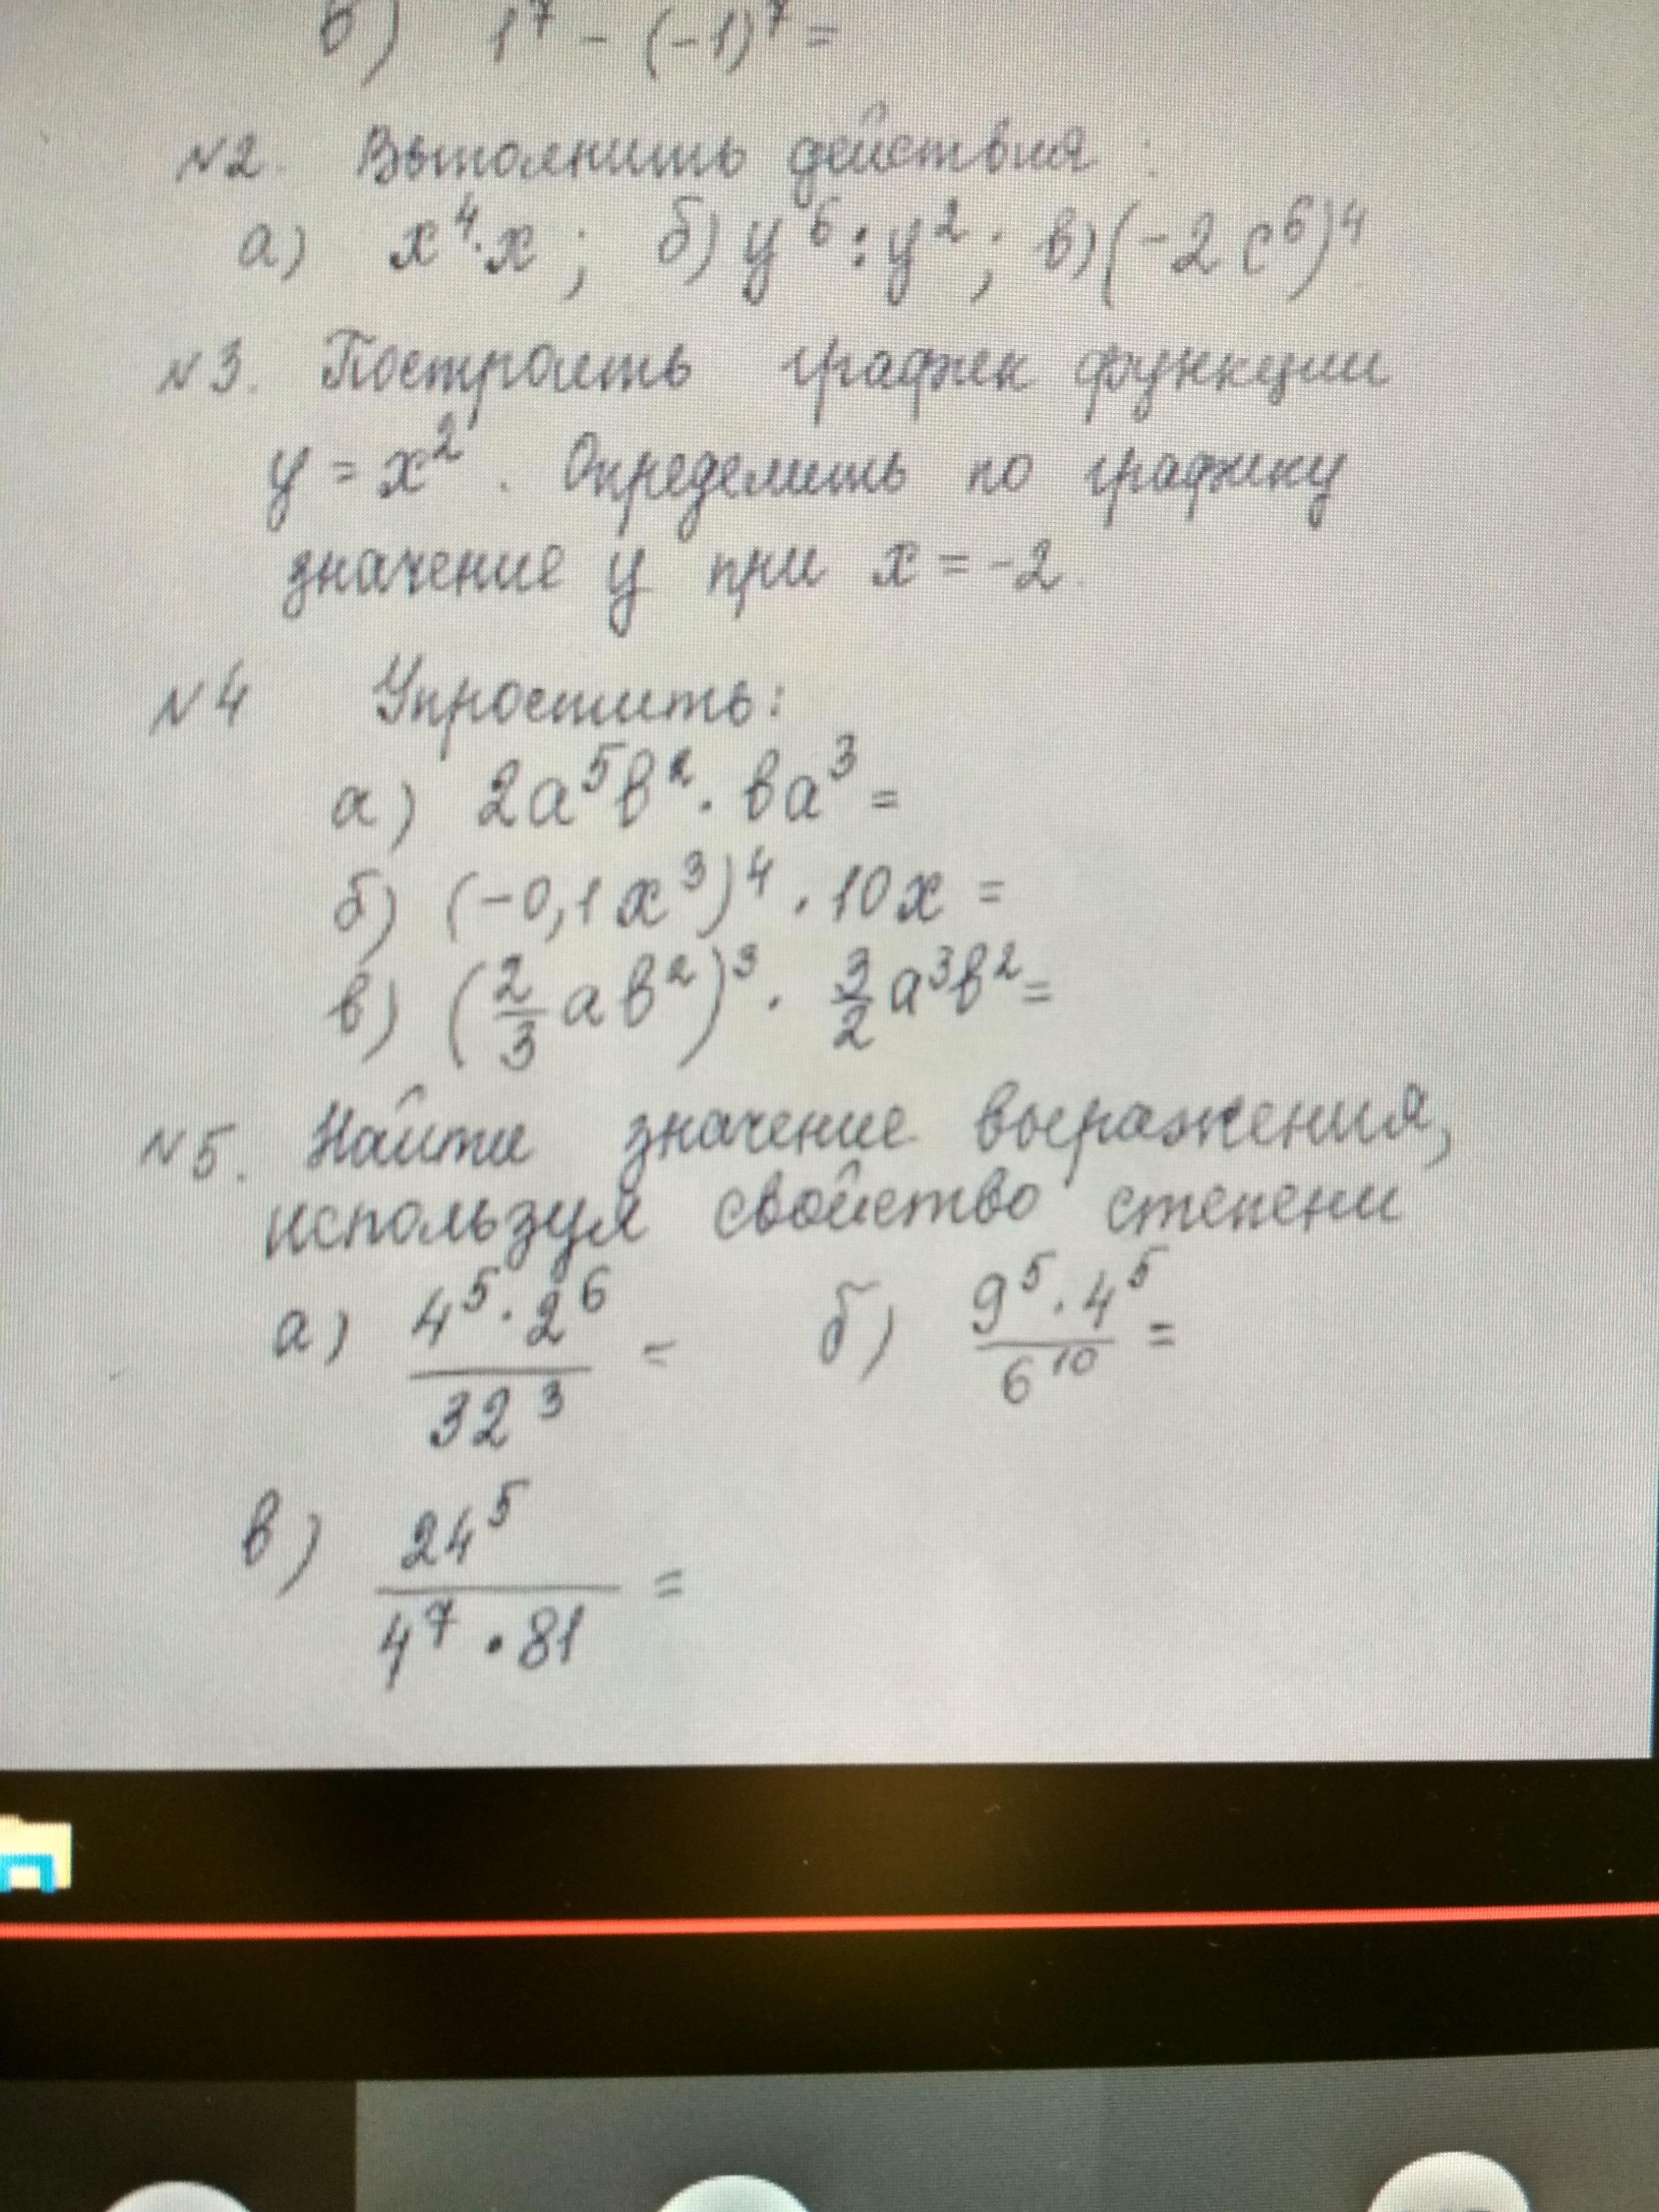 в) 1⁷ - (-1)⁷ =
N2. Выполнить действия:
а) x⁴·x; б) y⁶:y²; в) (-2c⁶)⁴
N3. Построить график функции
y = x². Определить по графику
значение y при x = -2.
N4 Упростить:
а) 2a⁵b²·ba³ =
б) (-0,1x³)⁴·10x =
в) (2/3 ab²)³·3/2 a³b² =
N5. Найти значение выражения,
используя свойство степени
а) 4⁵·2⁶/32³ = б) 9⁵·4⁵/6¹⁰ =
в) 24⁵/4⁷·81 =